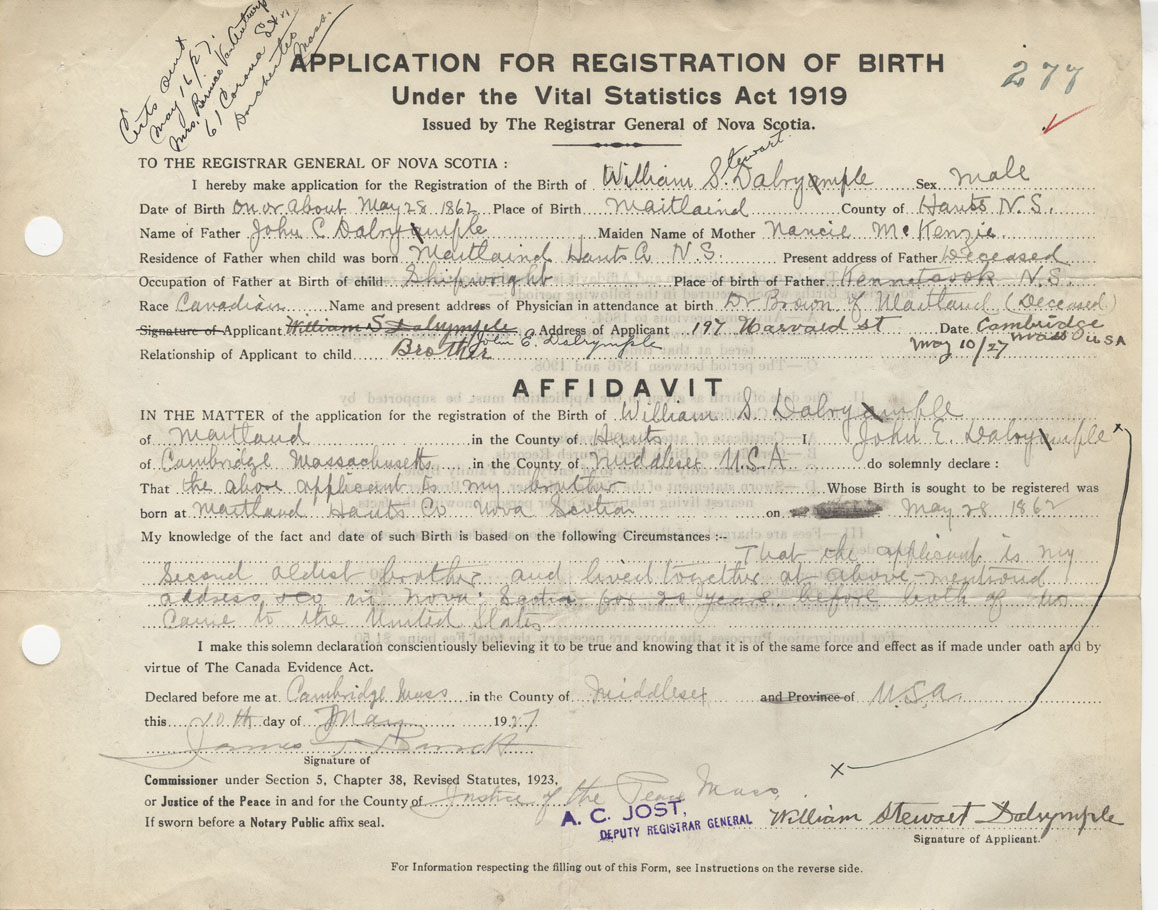 Certs out
May 16/27.
Mrs. Bernice Van Antwerp
61 Corona St.,
Dorchester
Mass.
APPLICATION FOR REGISTRATION OF BIRTH
277
Under the Vital Statistics Act 1919
Issued by The Registrar General of Nova Scotia.
TO THE REGISTRAR GENERAL OF NOVA SCOTIA :
Stewart
I hereby make application for the Registration of the Birth of William S. Dalrymple Sex Male
Date of Birth On or About May 28 1862 Place of Birth Maitlaind County of Hants N.S.
Name of Father John C Dalrymple Maiden Name of Mother Nancie McKenzie
Residence of Father when child was born Maitlaind Hants Co N.S. Present address of Father Deceased
Occupation of Father at Birth of child Shipwright Place of birth of Father Kennetcook N.S.
Race Canadian Name and present address of Physician in attendance at birth Dr Brown of Maitland (Deceased)
Signature of Applicant William S Dalrymple Address of Applicant 197 Harvard st Date Cambridge Mass USA
John E. Dalrymple May 10/27
Relationship of Applicant to child Brother
AFFIDAVIT
IN THE MATTER of the application for the registration of the Birth of William S. Dalrymple
of Maitland in the County of Hants I, John E Dalrymple x
of Cambridge Massachusetts in the County of Middlesex U.S.A do solemnly declare :
That the above applicant is my brother Whose Birth is sought to be registered was
born at Maitland Hants Co Nova Scotia on May 28 1862
My knowledge of the fact and date of such Birth is based on the following Circumstances :--
That the applicant is my
second oldest brother and lived together at above-mentioned
address in Nova Scotia for 20 years before both of us
came to the United States
I make this solemn declaration conscientiously believing it to be true and knowing that it is of the same force and effect as if made under oath and by
virtue of The Canada Evidence Act.
Declared before me at Cambridge Mass in the County of Middlesex and Province of U.S.A.
this 10th day of May 1927
James
Signature of
Commissioner under Section 5, Chapter 38, Revised Statutes, 1923, x
or Justice of the Peace in and for the County of Justice of the Peace Mass.
If sworn before a Notary Public affix seal.
A. C. JOST,
DEPUTY REGISTRAR GENERAL
William Stewart Dalrymple
Signature of Applicant.
For Information respecting the filling out of this Form, see Instructions on the reverse side.